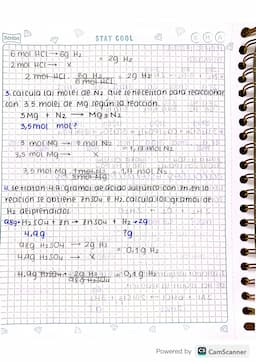 STAY COOL
6 mol HCl → 6g H₂
2 mol HCl → x
= 2g H₂
2 mol HCl · 6g H₂ = 2g H₂
6 mol HCl
3. calcula las moles de N₂ que se necesitan para reaccionar
con 3.5 moles de Mg según la reacción.
3Mg + N₂ → Mg₃N₂
3,5mol mol?
3 mol Mg → 1 mol N₂
3,5 mol Mg → x
= 1,17 mol N₂
3,5 mol Mg · 1 mol N₂ = 1,17 mol N₂
3 mol Mg
4. se tratan 4.9 gramos de ácido sulfúrico con Zn. En la
reacción se obtiene ZnSO₄ e H₂. calcula los gramos de
H₂ desprendidos
98g · H₂SO₄ + Zn → ZnSO₄ + H₂ → 2g
4.9g ?g
98g H₂SO₄ → 2g H₂
4,9g H₂SO₄ → x
= 0,1g H₂
4,9g H₂SO₄ · 2g H₂ = 0,1g H₂
98g H₂SO₄
Powered by CS CamScanner